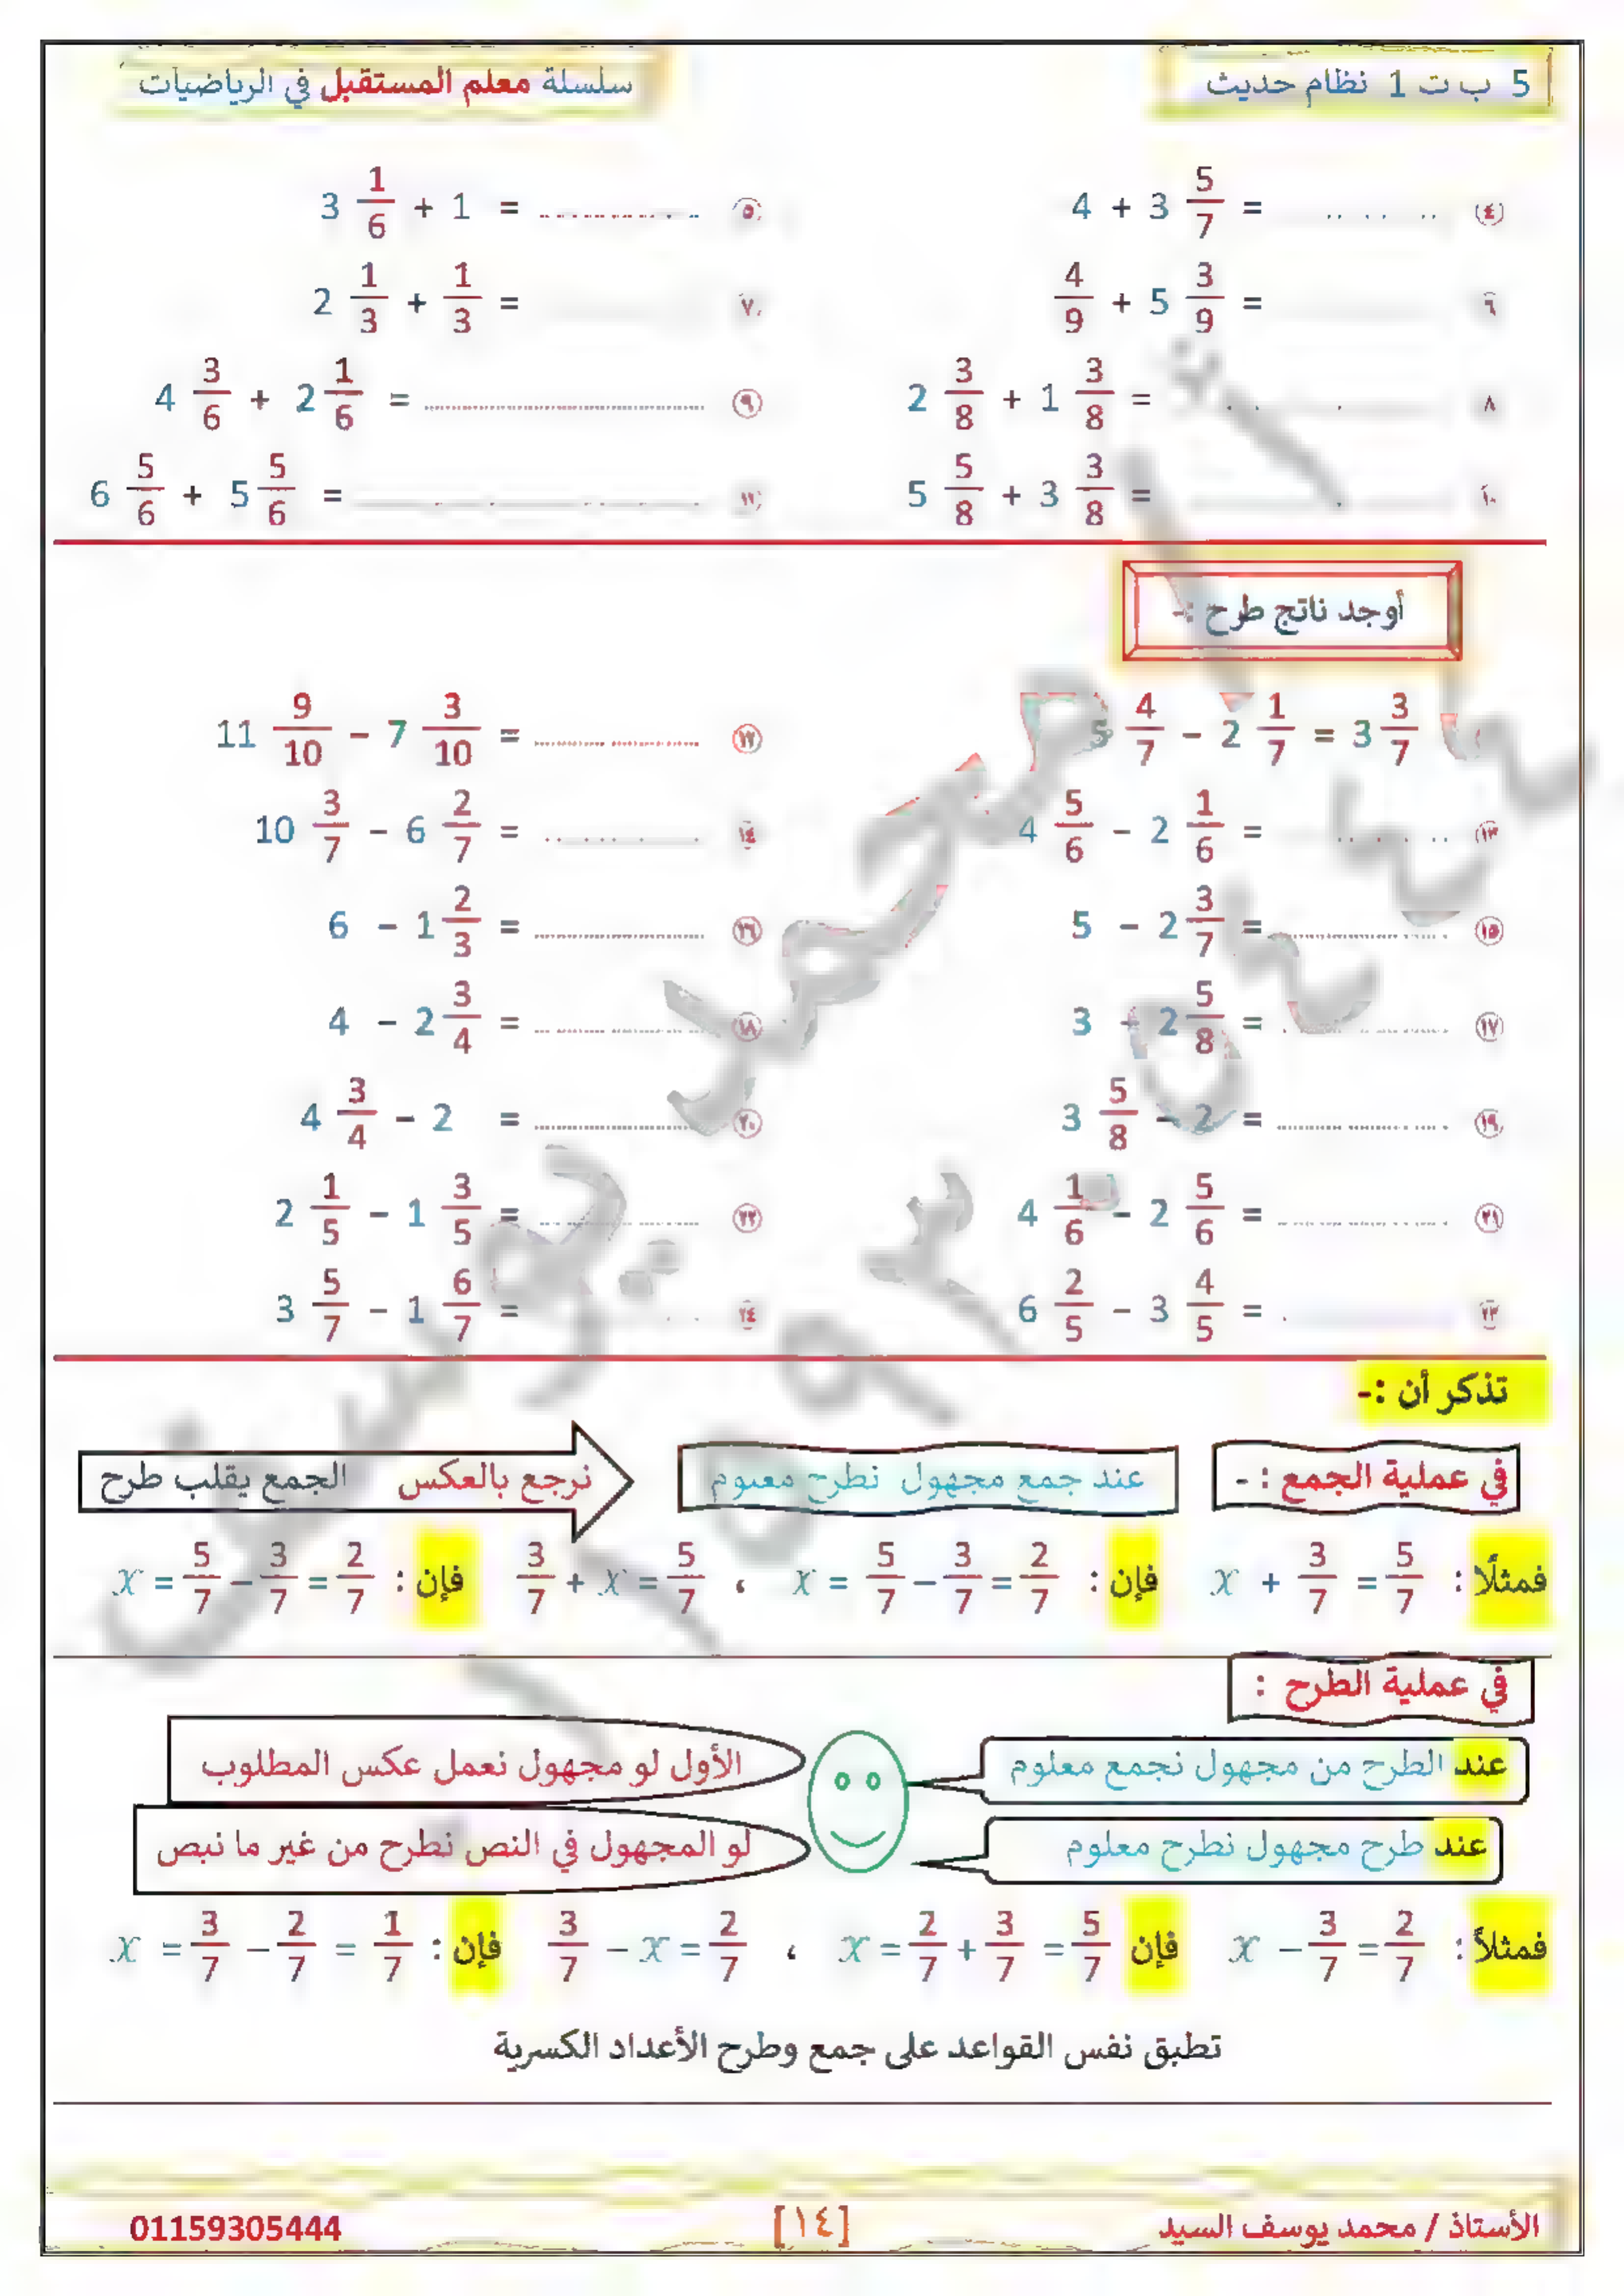 5 ب ت 1 نظام حديث
سلسلة معلم المستقبل في الرياضيات
٤) 4 + 3 5/7 = ..........
٥) 3 1/6 + 1 = ..........
٦ 4/9 + 5 3/9 =
٧ 2 1/3 + 1/3 =
٨ 2 3/8 + 1 3/8 =
٩ 4 3/6 + 2 1/6 = ..........
١٠ 5 5/8 + 3 3/8 =
١١ 6 5/6 + 5 5/6 = ..........
أوجد ناتج طرح :-
5 4/7 − 2 1/7 = 3 3/7
١٢ 11 9/10 − 7 3/10 = ..........
١٣ 4 5/6 − 2 1/6 = ..........
١٤ 10 3/7 − 6 2/7 = ..........
١٥ 5 − 2 3/7 = ..........
١٦ 6 − 1 2/3 = ..........
١٧ 3 − 2 5/8 = ..........
١٨ 4 − 2 3/4 = ..........
١٩ 3 5/8 − 2 = ..........
٢٠ 4 3/4 − 2 = ..........
٢١ 4 1/6 − 2 5/6 = ..........
٢٢ 2 1/5 − 1 3/5 = ..........
٢٣ 6 2/5 − 3 4/5 = ..........
٢٤ 3 5/7 − 1 6/7 = ..........
تذكر أن :-
في عملية الجمع : -
عند جمع مجهول نطرح معلوم
نرجع بالعكس الجمع يقلب طرح
فمثلًا : x + 3/7 = 5/7 فإن : x = 5/7 − 3/7 = 2/7 ، 3/7 + x = 5/7 فإن : x = 5/7 − 3/7 = 2/7
في عملية الطرح :
عند الطرح من مجهول نجمع معلوم
الأول لو مجهول نعمل عكس المطلوب
عند طرح مجهول نطرح معلوم
لو المجهول في النص نطرح من غير ما نبص
فمثلاً : x − 3/7 = 2/7 فإن x = 2/7 + 3/7 = 5/7 ، 3/7 − x = 2/7 فإن : x = 3/7 − 2/7 = 1/7
تطبق نفس القواعد على جمع وطرح الأعداد الكسرية
الأستاذ / محمد يوسف السيد
[١٤]
01159305444